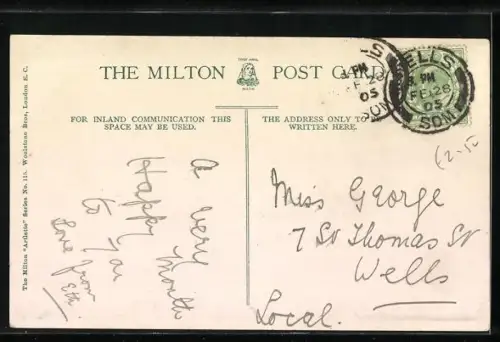 THE MILTON POST CARD
FOR INLAND COMMUNICATION THIS
SPACE MAY BE USED.
THE ADDRESS ONLY TO
WRITTEN HERE.
The Milton "Artistic" Series No. 115. Woolstone Bros., London E.C.
A very
Happy Month
to you
Love from
Eth.
Miss George
7 St Thomas St
Wells
Local.
WELLS
PM
FE 28
05
SOM
S
PM
FE 28
05
SOM